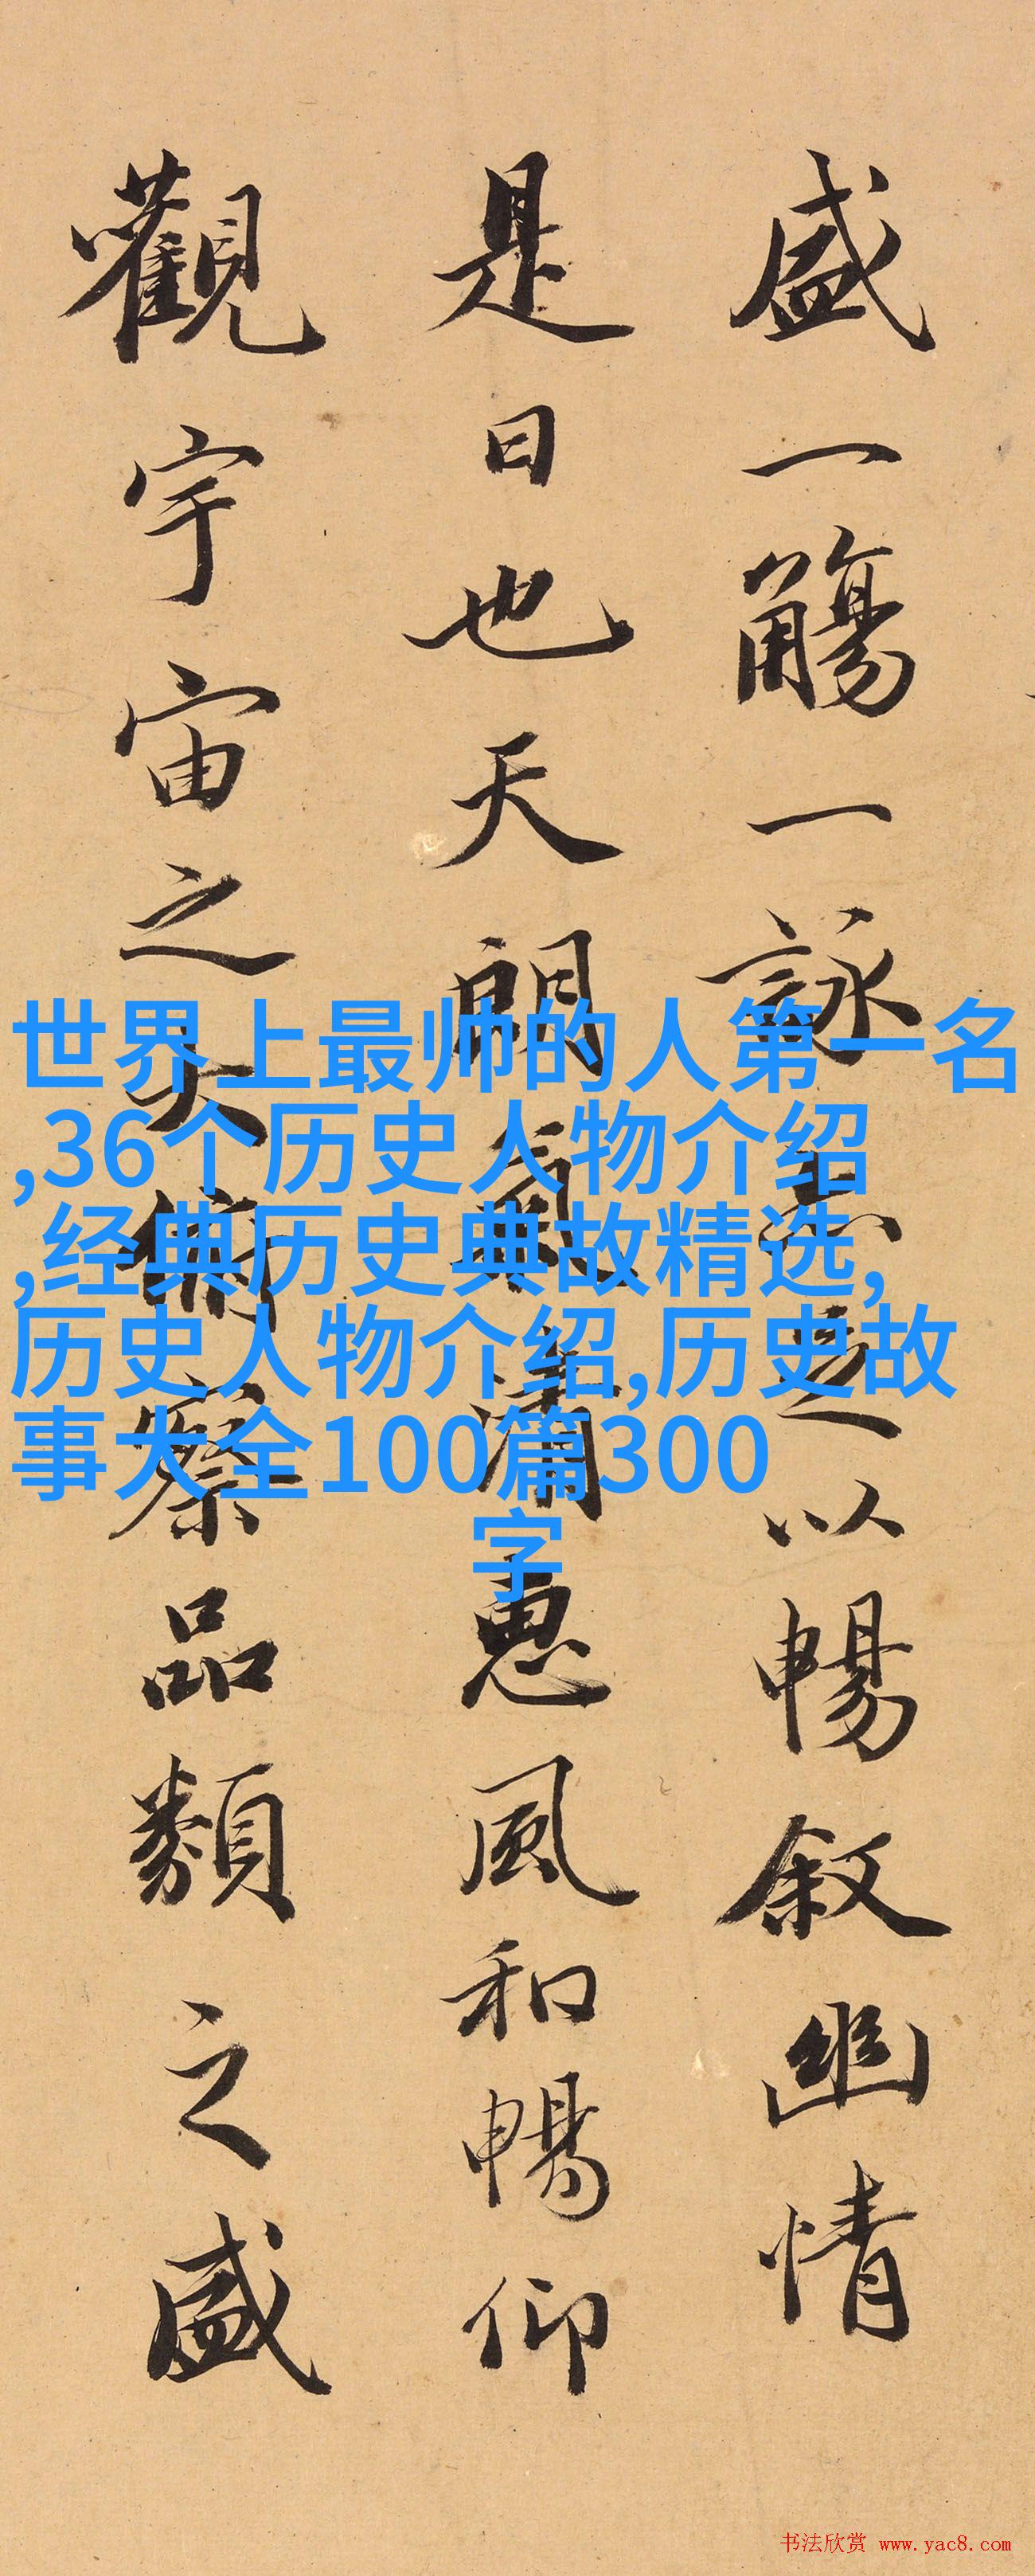 盛一觴一詠亦足以暢叙幽情
是日也天朗氣清惠風和暢仰
觀宇宙之大俯察品類之盛
世界上最帅的人第一名
,36个历史人物介绍
,经典历史典故精选,
历史人物介绍,历史故
事大全100篇300
字
书法欣赏 www.yac8.com